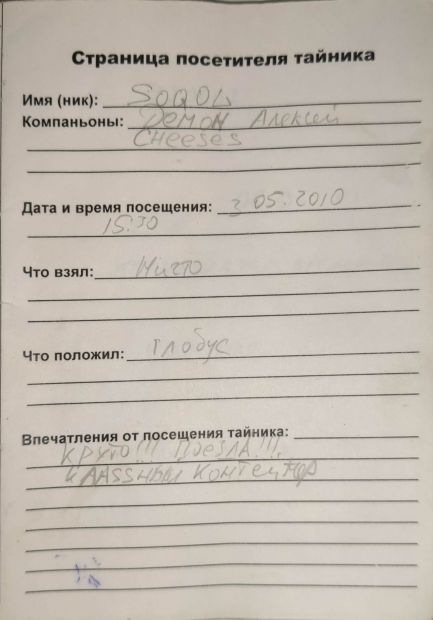 Страница посетителя тайника
Имя (ник): SOQOL
Компаньоны: DEMON Алексей
CHEESES
Дата и время посещения: 3 05.2010
15:30
Что взял: Ничто
Что положил: глобус
Впечатления от посещения тайника:
КРУТО!!! !!!
КЛАSSНЫЙ КОНТЕЙНЕР